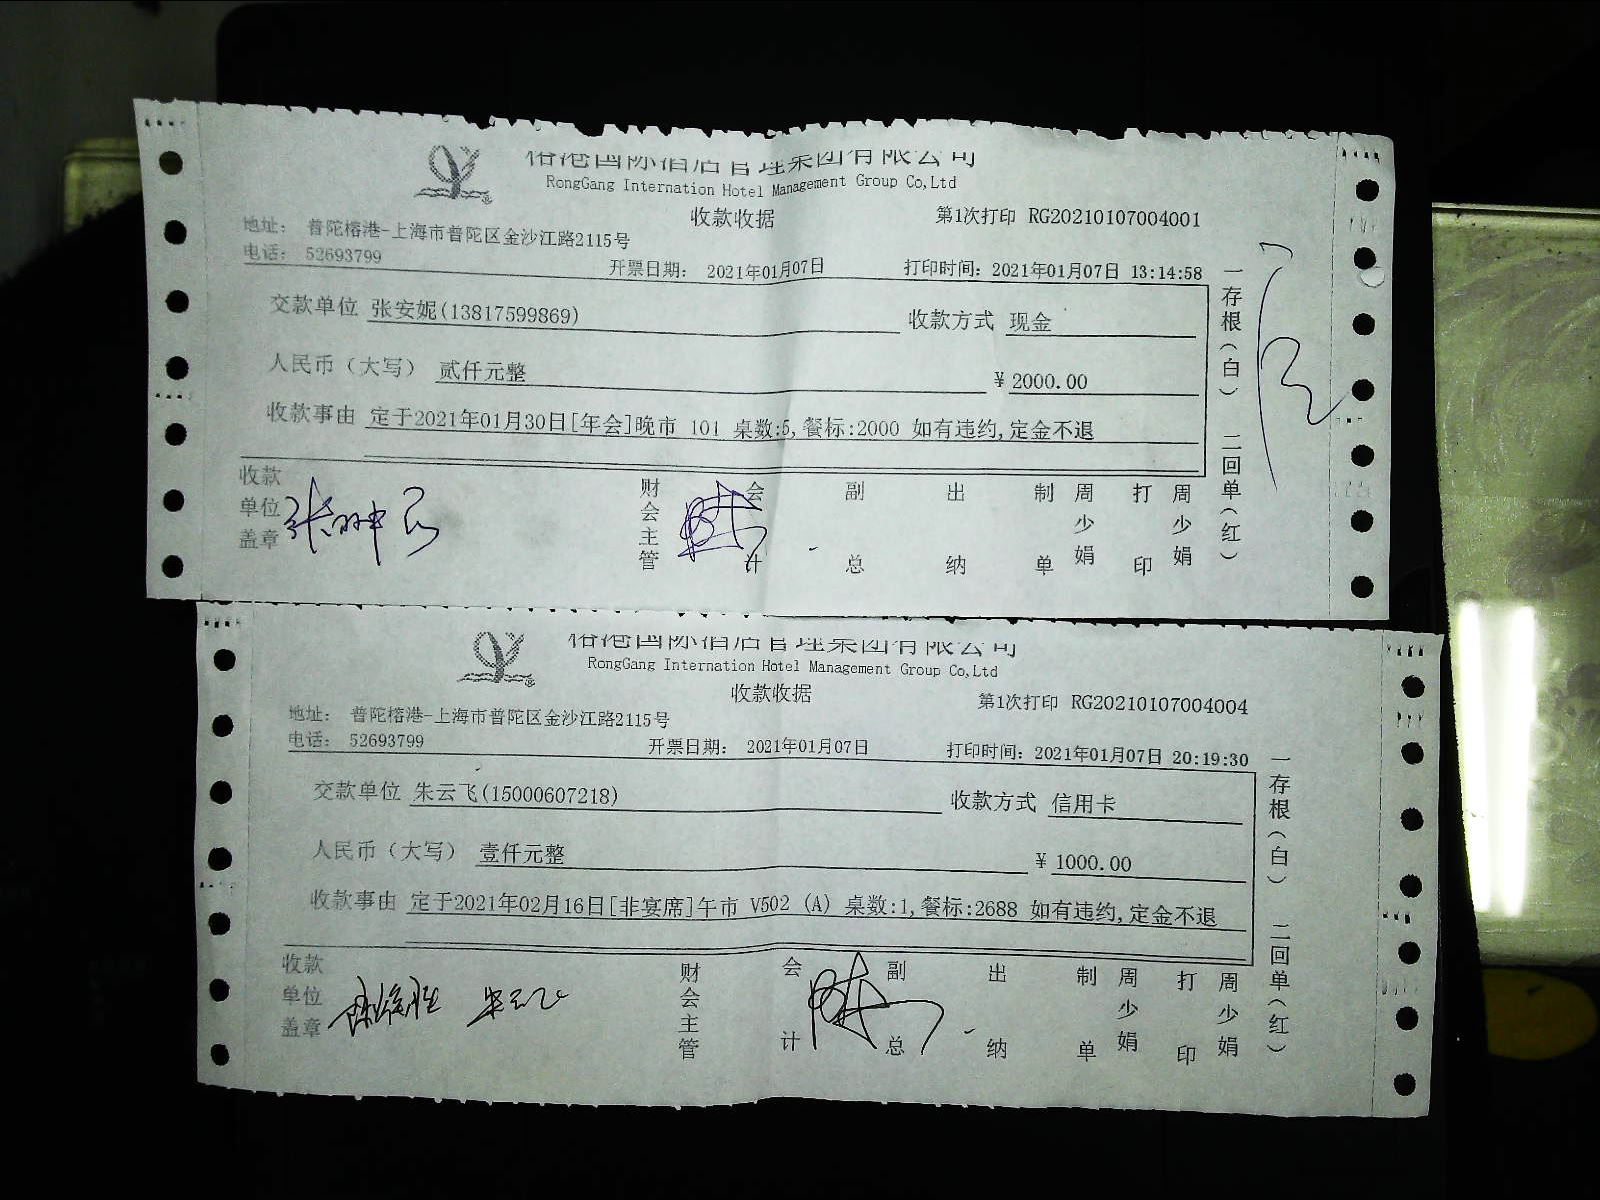 榕港国际酒店管理集团有限公司
RongGang Internation Hotel Management Group Co,Ltd
收款收据
第1次打印 RG20210107004001
地址： 普陀榕港-上海市普陀区金沙江路2115号
电话： 52693799
开票日期： 2021年01月07日
打印时间：2021年01月07日 13:14:58
交款单位 张安妮(13817599869)
收款方式 现金
人民币（大写） 贰仟元整
¥ 2000.00
收款事由 定于2021年01月30日[年会]晚市 101 桌数:5,餐标:2000 如有违约,定金不退
收款单位盖章
财会主管
会计
副总
出纳
制单 周少娟
打印 周少娟
一存根（白） 二回单（红）
榕港国际酒店管理集团有限公司
RongGang Internation Hotel Management Group Co,Ltd
收款收据
第1次打印 RG20210107004004
地址： 普陀榕港-上海市普陀区金沙江路2115号
电话： 52693799
开票日期： 2021年01月07日
打印时间：2021年01月07日 20:19:30
交款单位 朱云飞(15000607218)
收款方式 信用卡
人民币（大写） 壹仟元整
¥ 1000.00
收款事由 定于2021年02月16日[非宴席]午市 V502 (A) 桌数:1,餐标:2688 如有违约,定金不退
收款单位盖章
朱云飞
财会主管
会计
副总
出纳
制单 周少娟
打印 周少娟
一存根（白） 二回单（红）